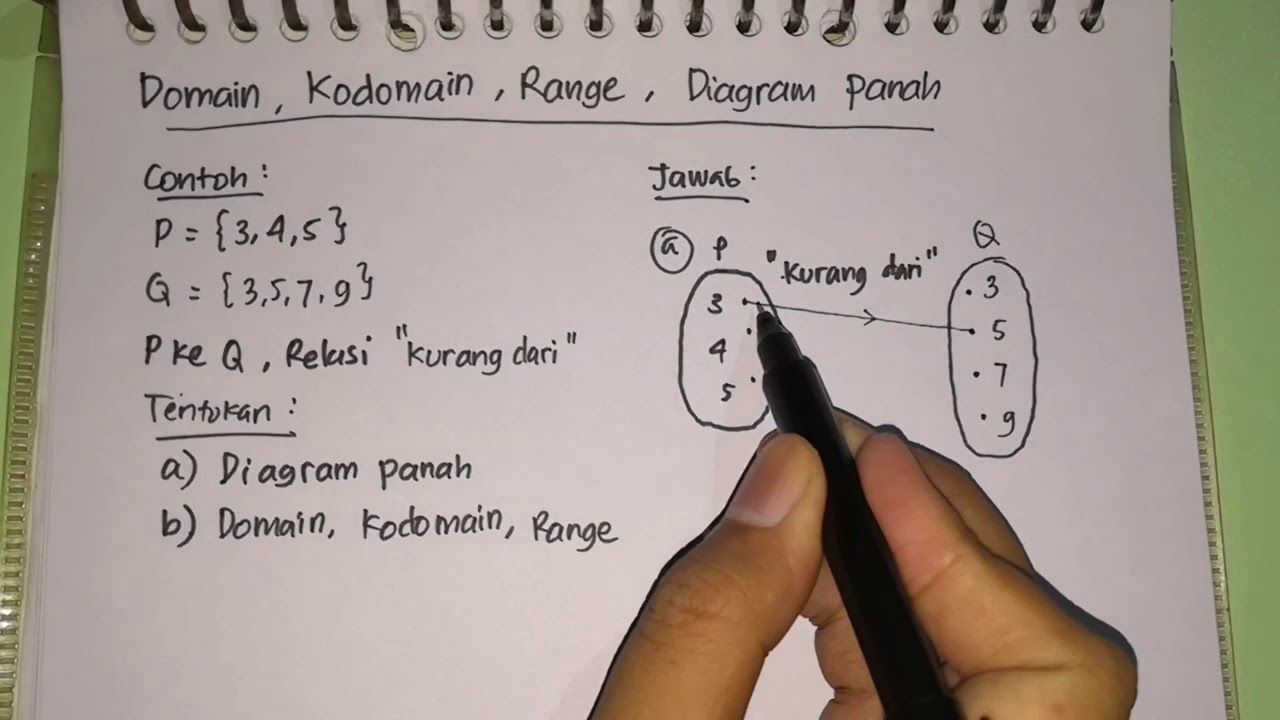 Domain, Kodomain, Range, Diagram panah
Contoh:
P = {3, 4, 5}
Q = {3, 5, 7, 9}
P ke Q, Relasi "kurang dari"
Tentukan:
a) Diagram panah
b) Domain, Kodomain, Range
Jawab:
a P "kurang dari" Q
3 3
4 5
5 7
9